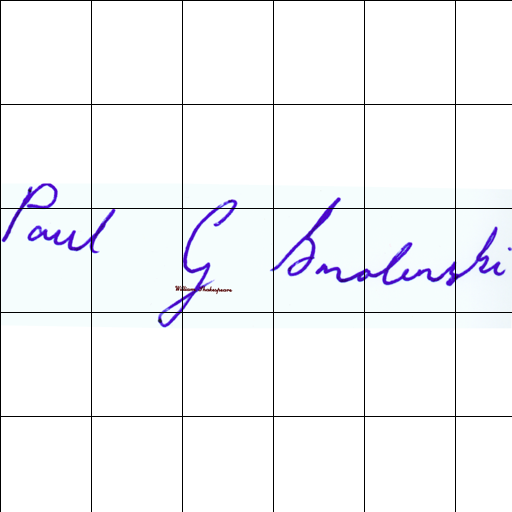 Paul G Smolenski
William Shakespeare